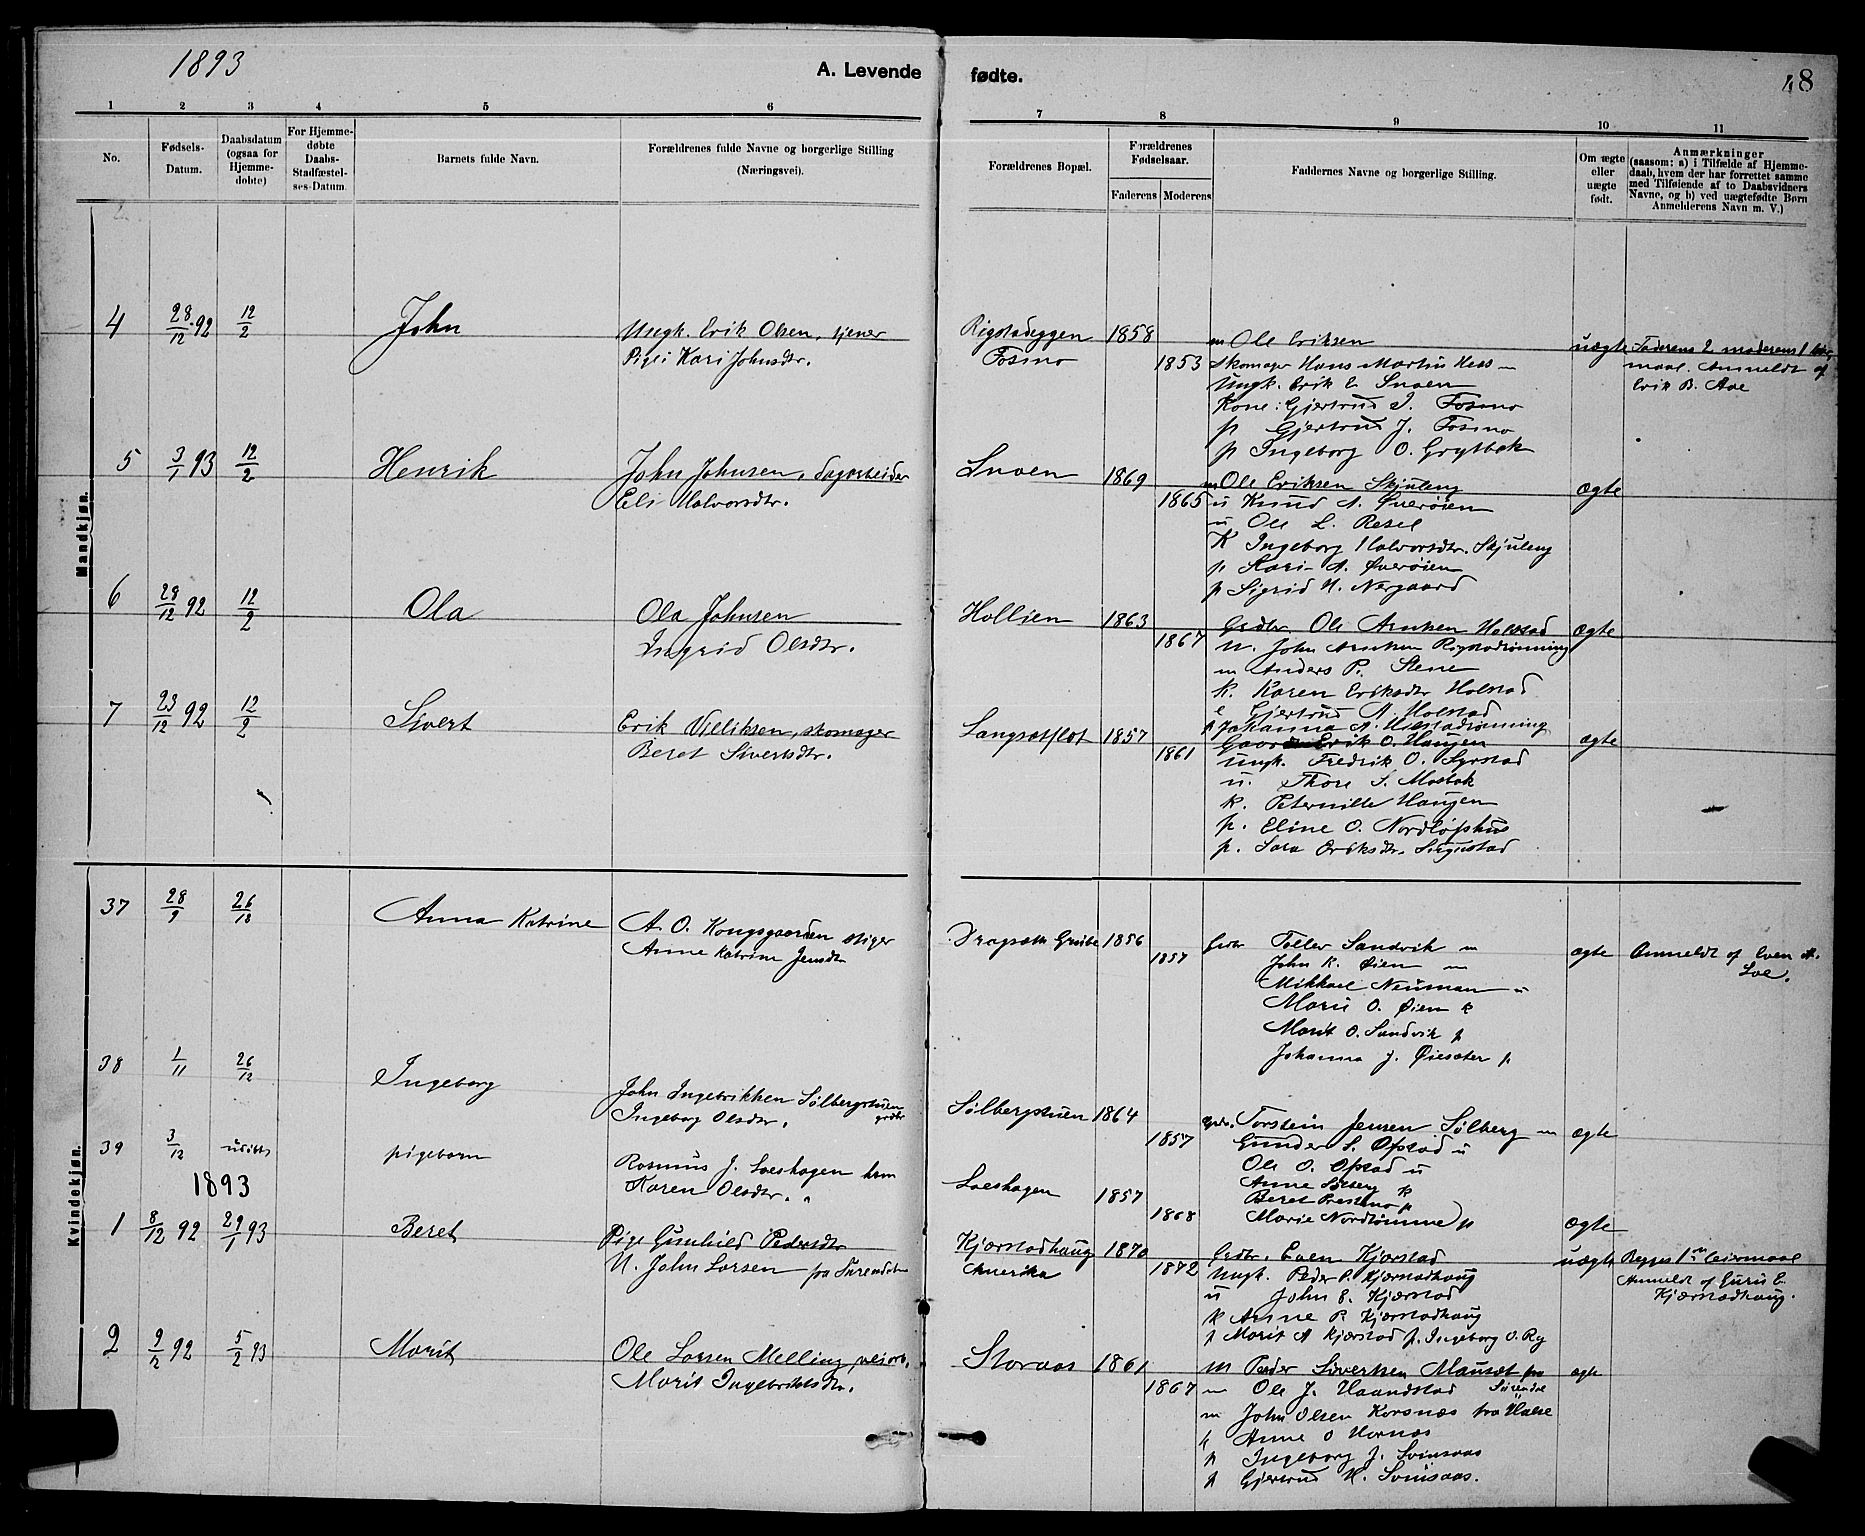 1893
A. Levende fødte.
48
1 2 3 4 5 6 7 8 9 10 11
No.
Fødsels-Datum.
Daabsdatum (ogsaa for Hjemme-døbte)
For Hjemme-døbte Daabs-Stadfæstel-ses-Datum.
Barnets fulde Navn.
Forældrenes fulde Navne og borgerlige Stilling (Næringsvei).
Forældrenes Bopæl.
Forældrenes Fødselsaar.
Faderens Moderens
Faddernes Navne og borgerlige Stilling.
Om ægte eller uægte født.
Anmærkninger (saasom: a) i Tilfælde af Hjemme-daab, hvem der har forrettet samme med Tilføiende af to Daabsvidners Navne, og b) ved uægtefødte Børn Anmelderens Navn m. V.)
Mandkjøn.
4 28/12 92 12/2 John
Ungk. Erik Olsen, tjener
Pige Kari Johnsdtr.
Rigstadeggen 1858
Fosmo 1853
m Ole Eriksen
Skomager Hans Martin Hess m
Ungk. Erik E. Snoen
Kone: Gjertrud I. Fosmo
p Gjertrud J. Fosmo
p Ingeborg O. Grytbak
uægte
Faderens 2 moderens 1 leier
maal. Anmeldt af
Erik B. Aae
5 3/1 93 12/2 Henrik
John Johnsen, dagarbeider
Eli Halvorsdtr.
Snoen 1869
1865
m Ole Eriksen Skjuleng
u Knud A. Øverøien
u Ole L. Resel
K Ingeborg Halvorsdtr. Skjuleng
p Kari A. Øverøien
p Sigrid H. Nergaard
ægte
6 28/12 92 12/2 Ola
Ola Johnsen
Ingrid Olsdtr.
Hollien 1863
1867
Grdbr Ole Arntsen Holstad
u. John Arntsen Rigstadrønning
m Anders P. Stene
k. Karen Eriksdtr Holstad
Gjertrud A. Holstad
p Johanna A. Holstadrønning
ægte
7 23/12 92 12/2 Sivert
Erik Villiksen, skomager
Beret Sivertsdtr.
Langsætflot 1857
1861
Erik O. Haugen
Ungk. Fredrik O. Syrstad
u. Thore S. Mosbak
k. Peternille Haugen
p. Eline O. Nordløfshus
p. Sara Eriksdtr. Singustad
ægte
Kvindekjøn.
37 28/9 26/12 Anna Katrine
A. O. Kongsgaarden stiger
Anne Katrine Jensdtr
Dragsæth Grube 1856
1857
Grdbr Tollev Sandvik m
John K. Øien m
Mikkael Neuman u
Marie O. Øien k
Marit O. Sandvik p
Johanna J. Øiesæter p
ægte
Anmeldt af Even A.
Loe.
38 1/11 26/12 Ingeborg
John Ingebrikken Sølbergstuen
grdbr
Ingeborg Olsdtr.
Sølbergstuen 1864
1857
grdr. Torstein Jensen Sølberg m
Gunder S. Ofstad u
Ole O. Ofstad u
Anne Sølberg k
Beret Prestmo p
Marie Nordtømme p
ægte
39 3/12 udøbt pigebarn
Rasmus J. Loeshagen hsm
Karen Olsdtr. "
Loeshagen 1857
1868
ægte
1893
1 8/12 92 29/1 93 Beret
Pige Gunhild Pedersdtr
U. John Larsen fra Surendalen
Kjørstadhaug 1870
Amerika 1872
Grdbr. Even Kjørstad
Ungk. Peder P. Kjørstadhaug
u John E. Kjørstad
k Anne P. Kjørstadhaug
p Marit A Kjørstad p. Ingeborg O. Ry
uægte
Begges 1ste leiermaal
Anmeldt af Guru E.
Kjørstadhaug.
2 9/2 92 5/2 93 Marit
Ole Larsen Melling, veiarb.
Marit Ingebriktsdtr.
Storaas 1861
1867
m Peder Sivertsen Mauset fra
Surendal
m Ole J. Haandstad
m John Olsen Korsnæs fra Halse
k Anne O Hornæs
p Ingeborg J. Svinsaas
p Gjertrud H. Svinsaas.
ægte